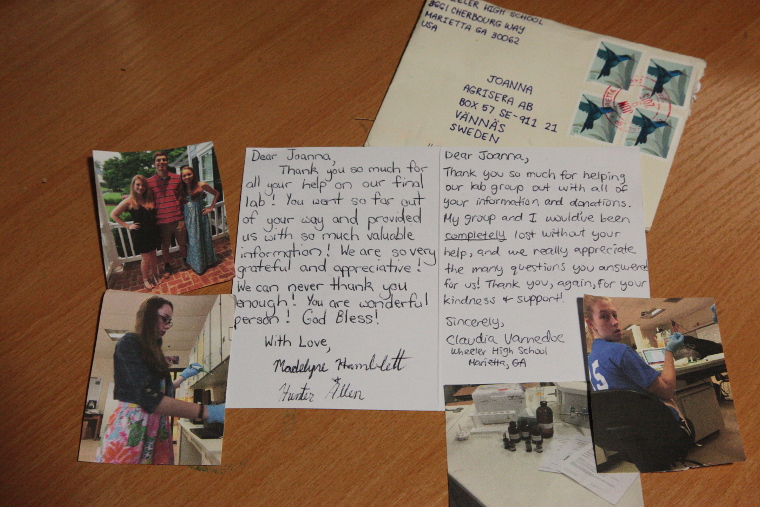 WHEELER HIGH SCHOOL
3661 CHERBOURG WAY
MARIETTA GA 30062
USA
JOANNA
AGRISERA AB
BOX 57 SE-911 21
VÄNNÄS
SWEDEN
Dear Joanna,
Thank you so much for
all your help on our final
lab! You went so far out
of your way and provided
us with so much valuable
information! We are so very
grateful and appreciative!
We can never thank you
enough! You are wonderful
person! God Bless!
With Love,
Madelyne Hamblett
Hunter Allen
Dear Joanna,
Thank you so much for helping
our lab group out with all of
your information and donations.
My group and I would've been
completely lost without your
help, and we really appreciate
the many questions you answered
for us! Thank you, again, for your
kindness & support!
Sincerely,
Claudia Varnedoe
Wheeler High School
Marietta, GA